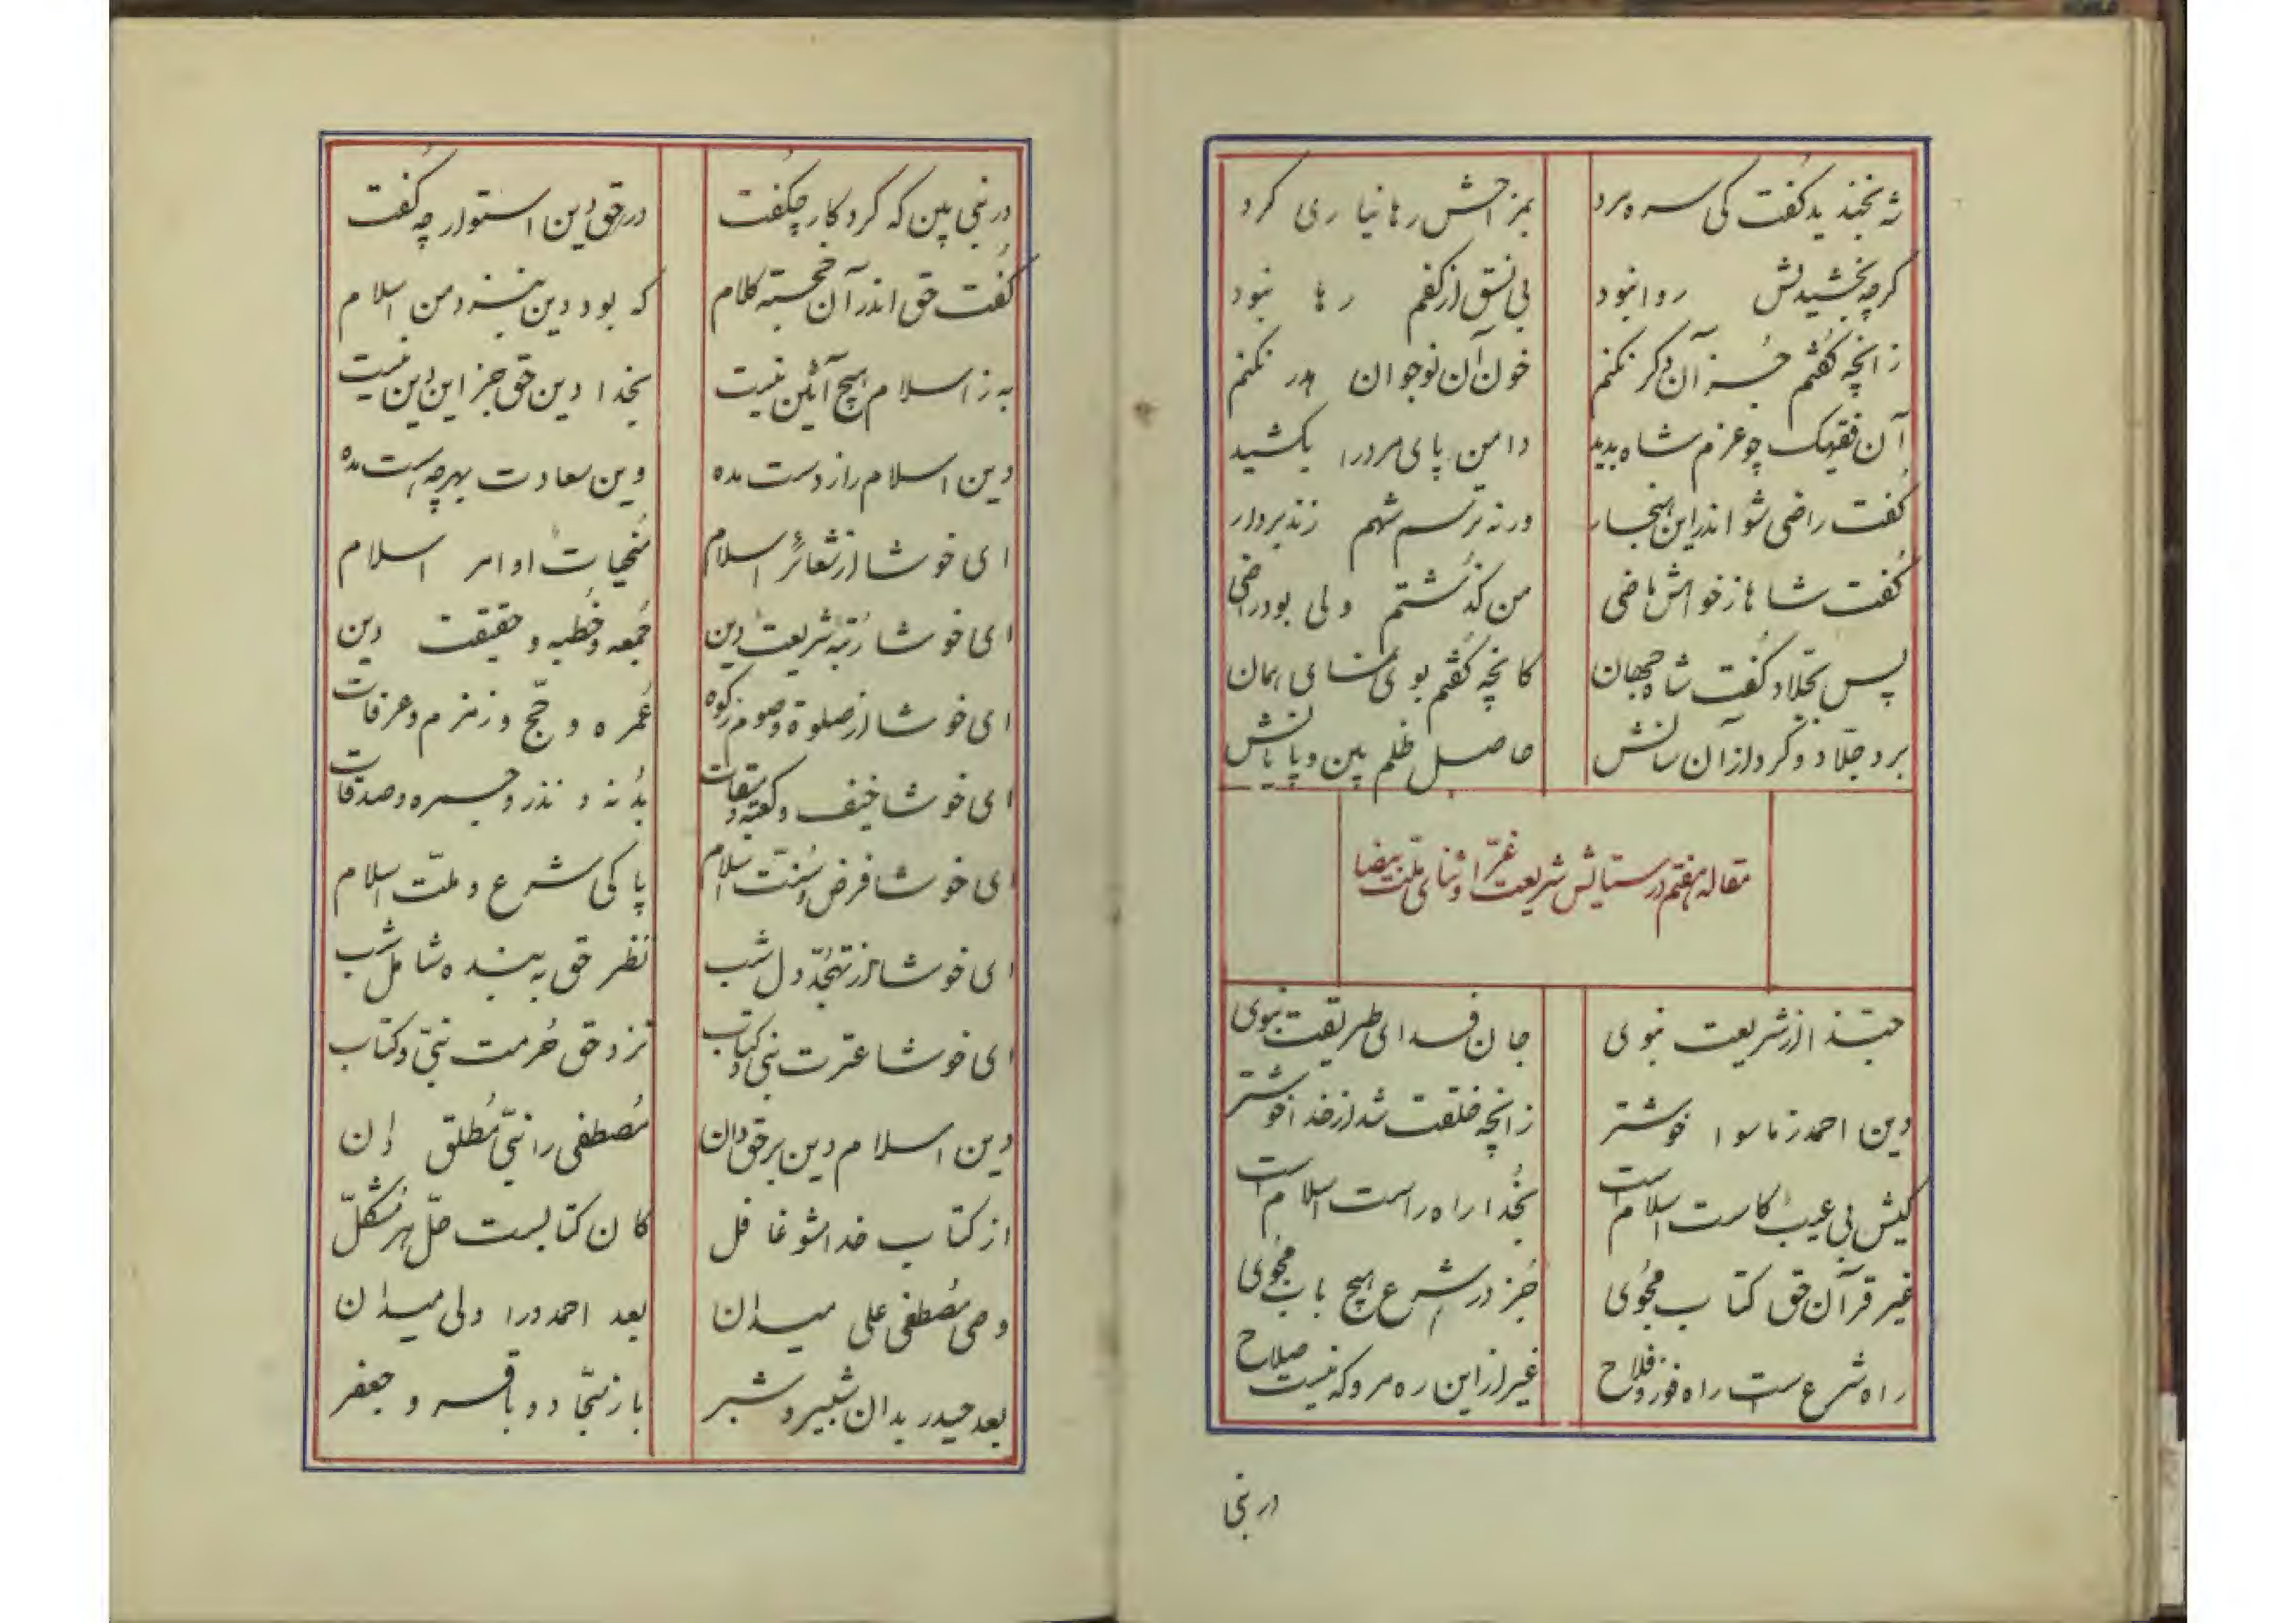 شه بخندید گفت کی سره مرد
بمزاحش رها نیاری کرد
گرچه بخشیدنش روا نبود
بی نسق از کفم رها نبود
زانچه گفتم جز آن دگر نکنم
خون آن نوجوان هدر نکنم
آن فقیهک چو عزم شاه بدید
دامن پای مرد را بکشید
گفت راضی شو اندراین هنجار
ورنه ترسم شهم زند بردار
گفت شاها زخواهش ماضی
من گذشتم ولی بود راضی
پس بجلاد گفت شاه جهان
کانچه گفتم بوی نمای همان
برد جلاد و کرد از آن سانش
حاصل ظلم بین و پایانش
مقاله هفتم در ستایش شریعت غرّا و ثنای ملت بیضا
حبّذا از شریعت نبوی
جان فدای طریقت نبوی
دین احمد ز ماسوا خوشتر
زانچه خلقت شد از خدا خوشتر
کیش بی عیب کاست اسلام است
بخدا راه راست اسلام است
غیر قرآن حق کتاب مجوی
جز در شرع هیچ باب مجوی
راه شرعست راه فوز و فلاح
غیر از این ره مرو که نیست صلاح
در نبی
در نبی بین که کردکار چگفت
در حق دین استوار چه گفت
گفت حق اندر آن خجسته کلام
که بود دین بنزد من اسلام
به ز اسلام هیچ آئین نیست
بخدا دین حق جز این دین نیست
دین اسلام را ز دست مده
وین سعادت بهرچه هست مده
ای خوشا از شعائر اسلام
منجیات اوامر اسلام
ای خوشا رتبهٔ شریعت دین
جمعه و خطبه و حقیقت دین
ای خوشا از صلوة و صوم و زکوة
عمره و حجّ و زمزم و عرفات
ای خوشا خیف و کعبه و میقات
بدنه و نذر و جمره و صدقات
ای خوشا فرض و سنّت اسلام
پاکی شرع و ملّت اسلام
ای خوشا از تهجّد دل شب
نظر حق به بنده شامل شب
ای خوشا عترت نبی و کتاب
نزد حق حُرمت نبیّ و کتاب
دین اسلام دین برحق دان
مُصطفی را نبیّ مُطلق دان
از کتاب خدا مشو غافل
کان کتابست حلّ هر مُشکل
وصی مُصطفی علی میدان
بعد احمد ورا ولی میدان
بعد حیدر بدان شبیر و شبر
باز سجّاد و باقر و جعفر